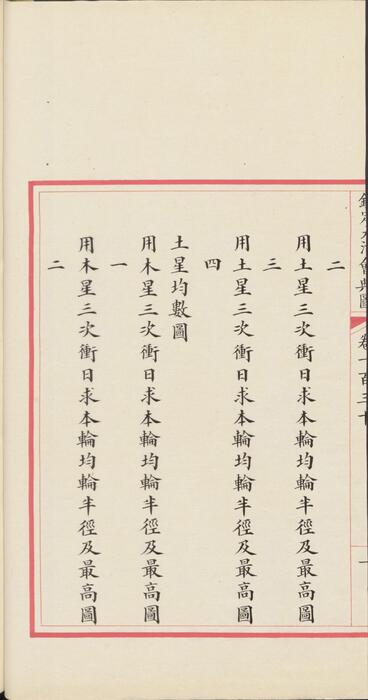 欽定大清會典圖
卷一百三十
二
用土星三次衝日求本輪均輪半徑及最高圖
三
用土星三次衝日求本輪均輪半徑及最高圖
四
土星均數圖
用木星三次衝日求本輪均輪半徑及最高圖
一
用木星三次衝日求本輪均輪半徑及最高圖
二